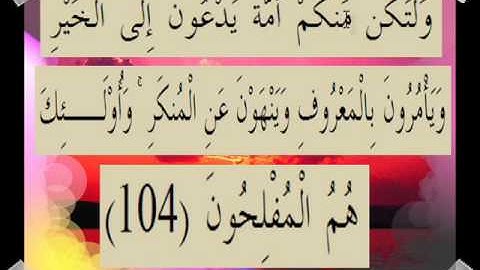 وَلْتَكُن مِّنكُمْ أُمَّةٌ يَدْعُونَ إِلَى الْخَيْرِ
وَيَأْمُرُونَ بِالْمَعْرُوفِ وَيَنْهَوْنَ عَنِ الْمُنكَرِ ۚ وَأُوْلَـــــئِكَ
هُمُ الْمُفْلِحُونَ (104)